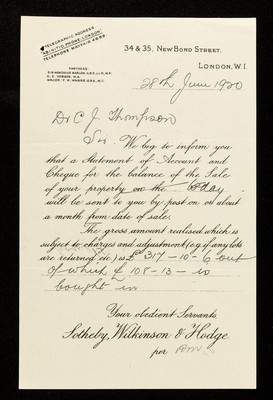 TELEGRAPHIC ADDRESS
"ABINITIO, PHONE, LONDON."
TELEPHONE MAYFAIR
34 & 35, NEW BOND STREET,
LONDON, W.I.
PARTNERS:
SIR MONTAGUE BARLOW, K.B.E., LL.D., M.P.
G. D. HOBSON, M.A.
MAJOR F. W. WARRE, O.B.E., M.C.
28th June 1920
Dr C J. Thompson
Sir. We beg to inform you
that a Statement of Account and
Cheque for the balance of the Sale
of your property on the today
will be sent to you by post on or about
a month from date of sale.
The gross amount realised which is
subject to charges and adjustment (e.g if any lots
are returned etc) is £317-10-6 out
of which £108-13- is
bought in
Your obedient Servants
Sotheby, Wilkinson & Hodge
per